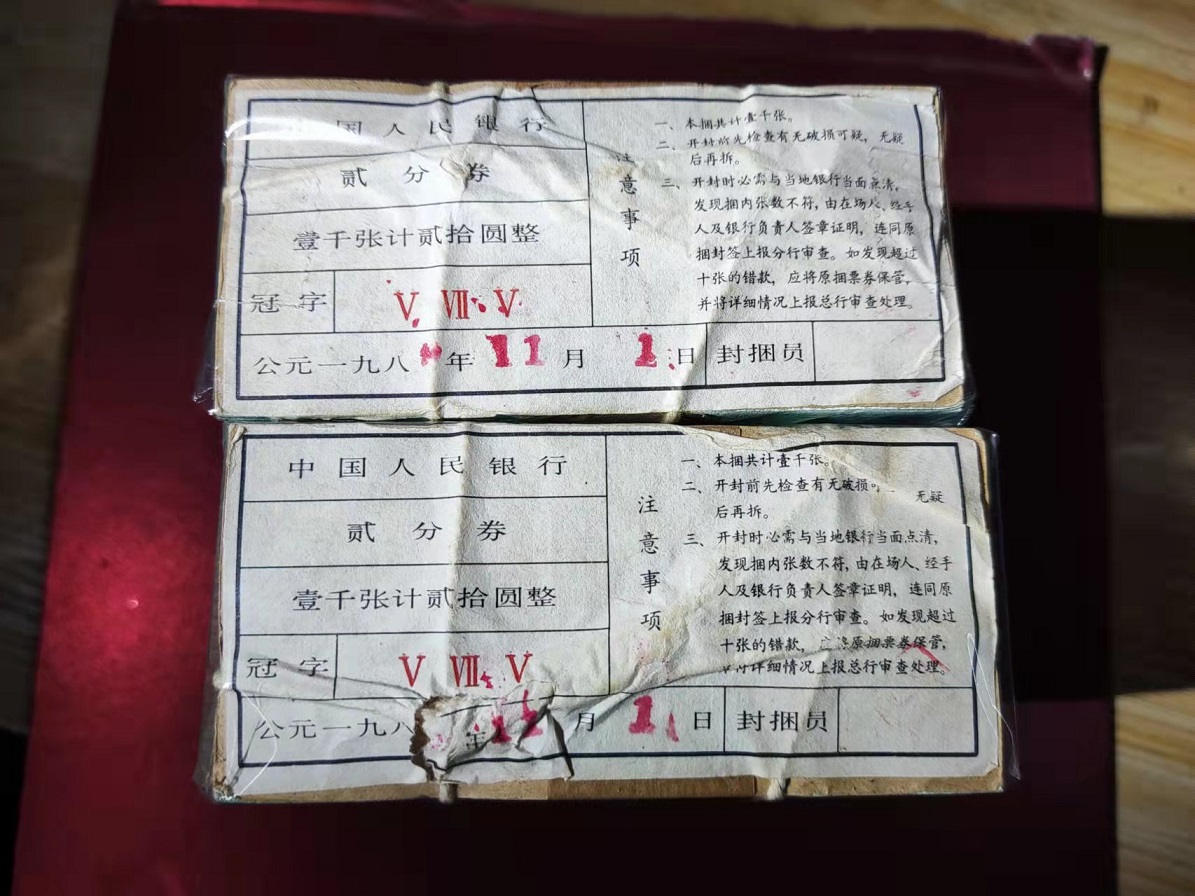 中国人民银行
贰分券
壹千张计贰拾圆整
冠字
V VII V
公元一九八 年 11 月 1 日
封捆员
注意事项
一、本捆共计壹千张。
二、开封前先检查有无破损可疑，无疑
后再拆。
三、开封时必需与当地银行当面点清，
发现捆内张数不符，由在场人、经手
人及银行负责人签章证明，连同原
捆封签上报分行审查。如发现超过
十张的错款，应将原捆票券保管，
并将详细情况上报总行审查处理。
中国人民银行
贰分券
壹千张计贰拾圆整
冠字
V VII V
公元一九八 年 11 月 1 日
封捆员
注意事项
一、本捆共计壹千张。
二、开封前先检查有无破损 无疑
后再拆。
三、开封时必需与当地银行当面点清，
发现捆内张数不符，由在场人、经手
人及银行负责人签章证明，连同原
捆封签上报分行审查。如发现超过
十张的错款，应将原捆票券保管，
并将详细情况上报总行审查处理。